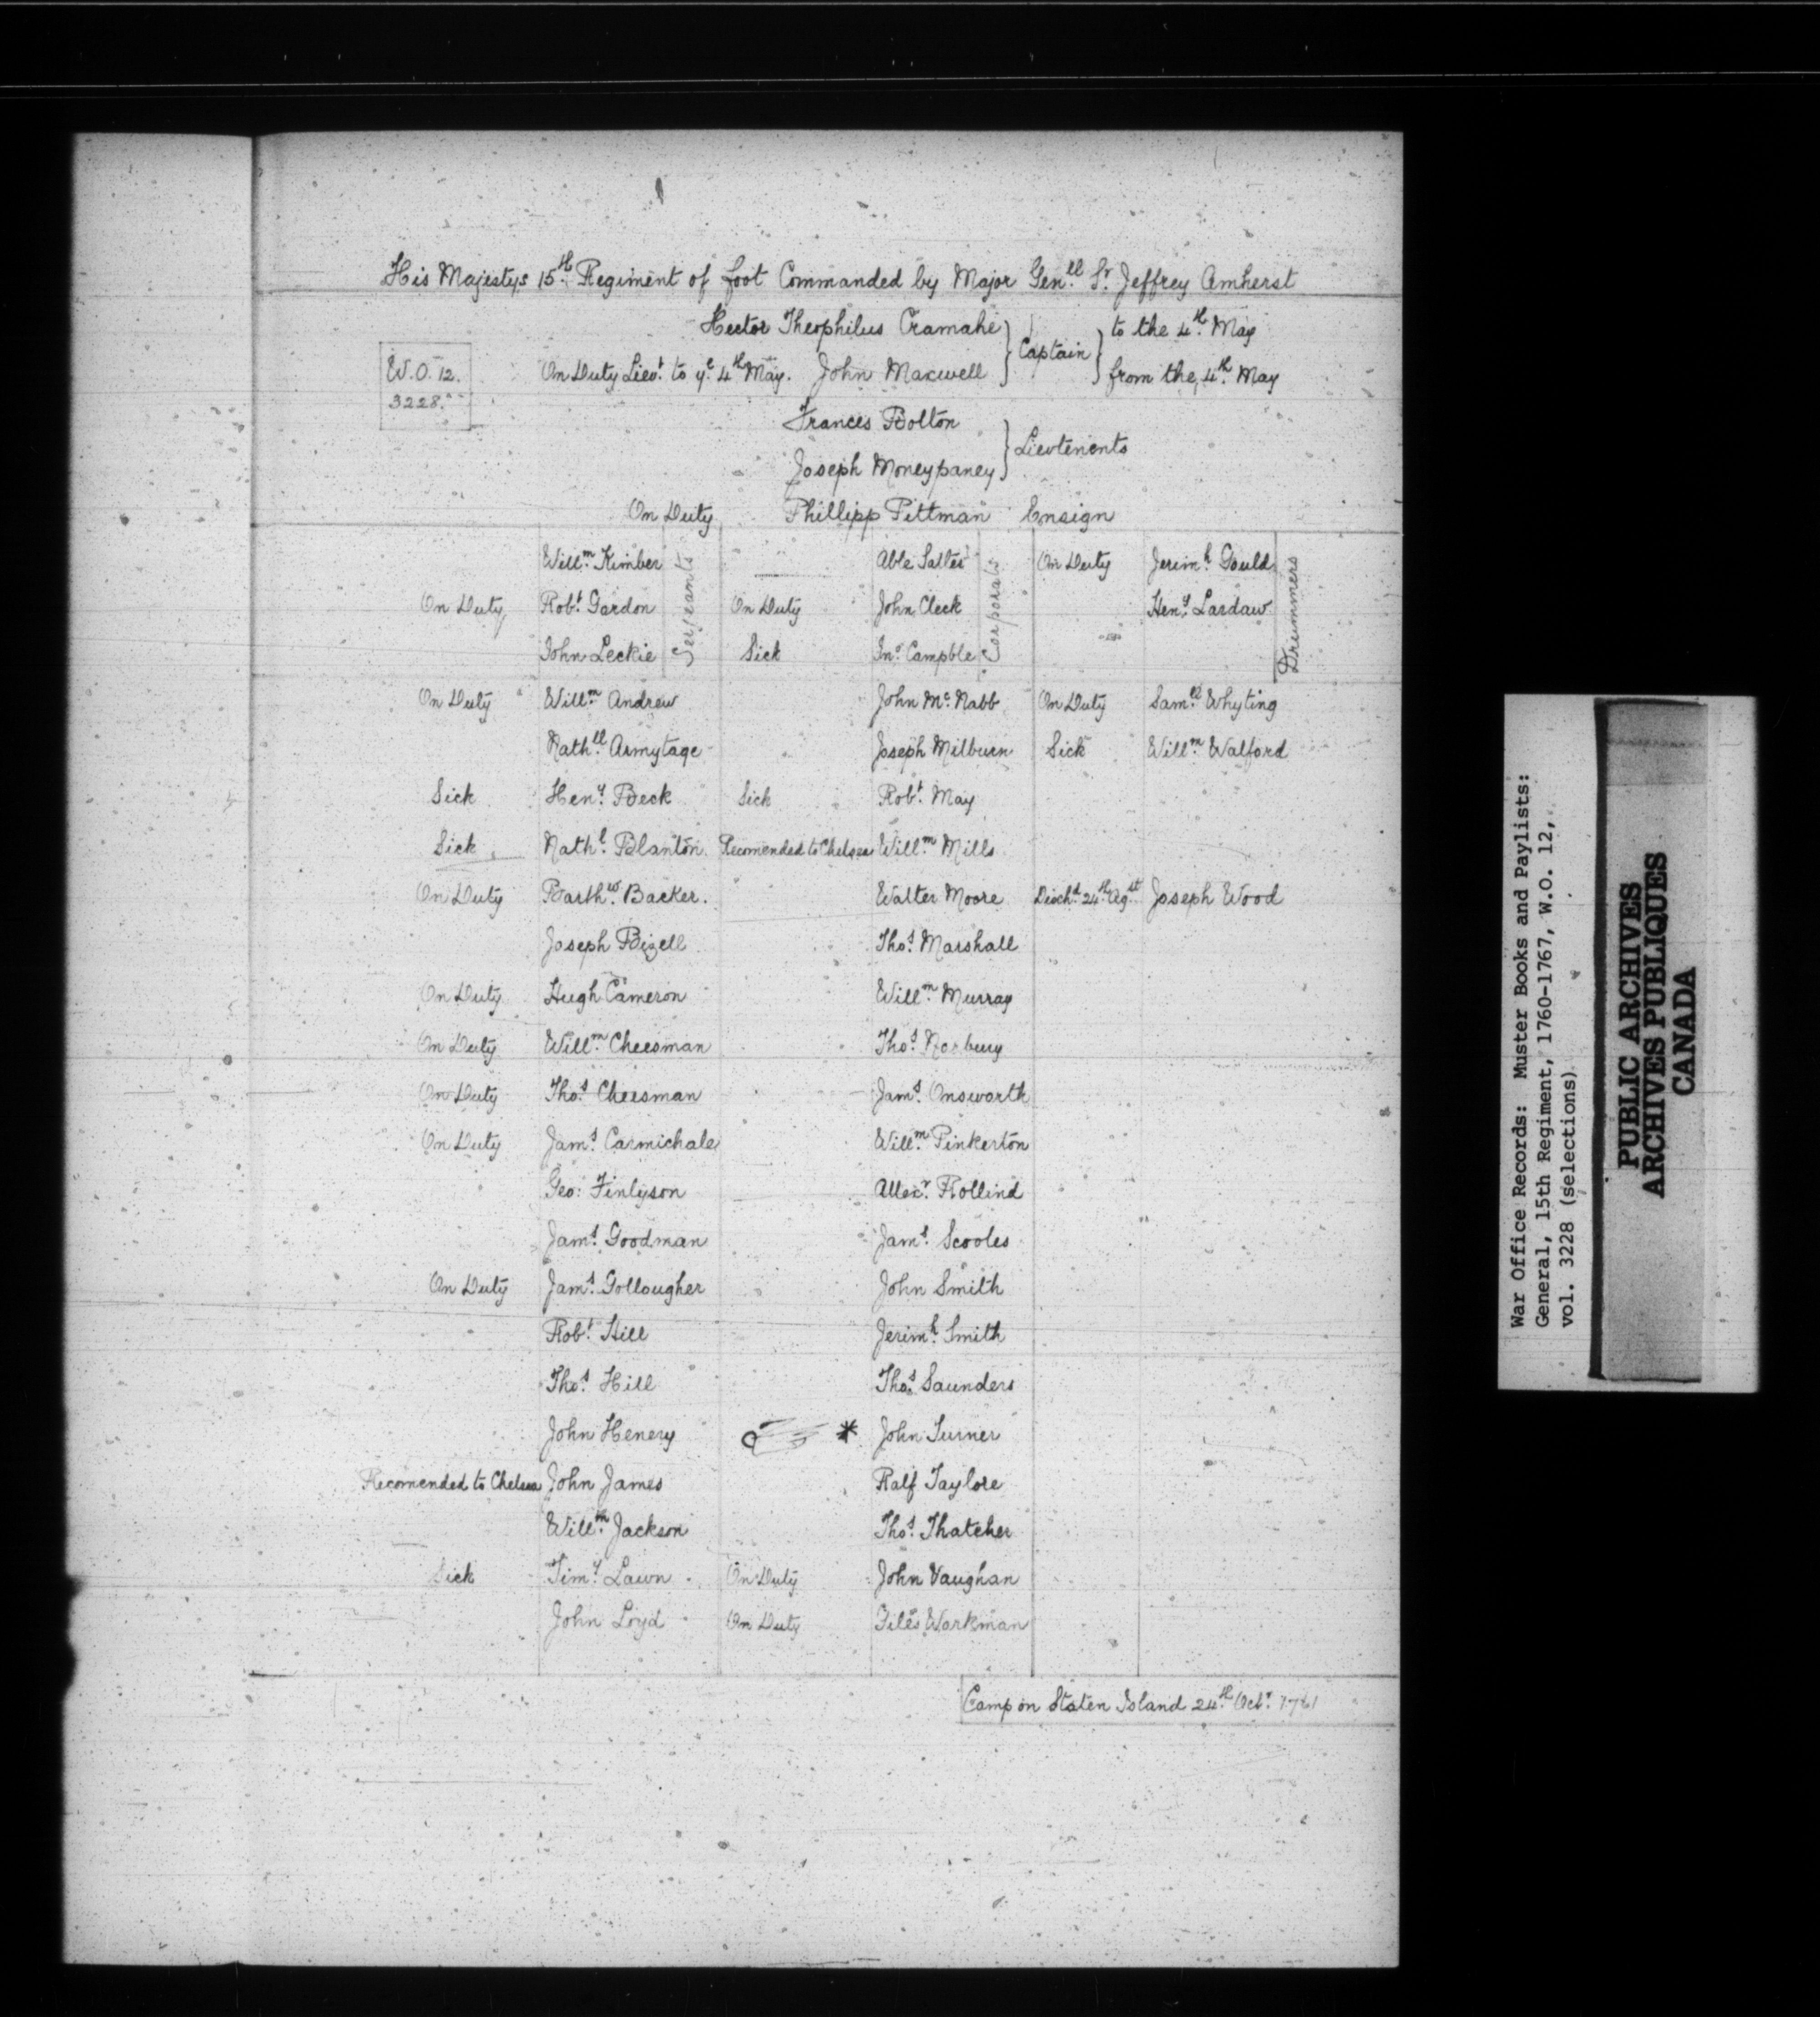 His Majestys 15th Regiment of foot Commanded by Major Genll Sr Jeffrey Amherst
Hector Theophilus Cramahe } Captain } to the 4th May
W.O. 12. 3228.
On Duty Lievt to ye 4th May. John Maxwell } from the 4th May
Frances Bolton } Lievtenents
Joseph Moneypaney
On Duty Phillipp Pittman Ensign
Serjeants Corporals Drummers
Willm Kimber Able Salter On Duty Jerimh Gould
On Duty Robt Gordon On Duty John Cleck Heny Lardaw
John Leckie Sick Jno Campble
On Duty Willm Andrew John Mc Nabb On Duty Samll Whyting
Nathll Armytage Joseph Milburn Sick Willm Walford
Sick Heny Beck Sick Robt May
Sick Nathl Blanton Recomended to Chelsea Willm Mills
On Duty Barthw Backer. Walter Moore Dischd 24th Augst Joseph Wood
Joseph Bizell Thos Marshall
On Duty Hugh Cameron Willm Murray
On Duty Willm Cheesman Thos Norbury
On Duty Thos Cheesman Jams Onsworth
On Duty Jams Carmichale Willm Pinkerton
Geo: Finlyson Allexr Rollind
Jams Goodman Jams Scooles
On Duty Jams Gollougher John Smith
Robt Hill Jerimh Smith
Thos Hill Thos Saunders
John Henery * John Turner
Recomended to Chelsea John James Ralf Taylore
Willm Jackson Thos Thatcher
Sick Timy Lawn On Duty John Vaughan
John Loyd On Duty Giles Workman
Camp on Staten Island 24th Octr 1761
War Office Records: Muster Books and Paylists:
General, 15th Regiment, 1760-1767, W.O. 12,
vol. 3228 (selections)
PUBLIC ARCHIVES
ARCHIVES PUBLIQUES
CANADA